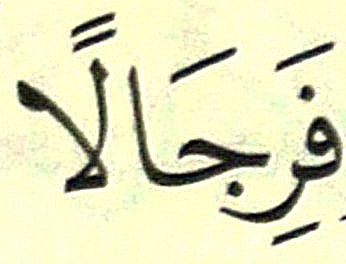 فَرِجَالًا